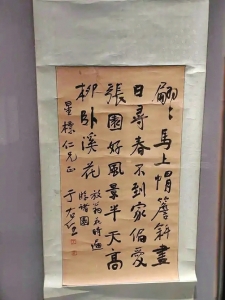 翩〻馬上帽簷斜盡
日尋春不到家偏愛
張園好風景半天高
柳臥溪花
放翁花時遍
游諸園
星標仁兄正
于右任